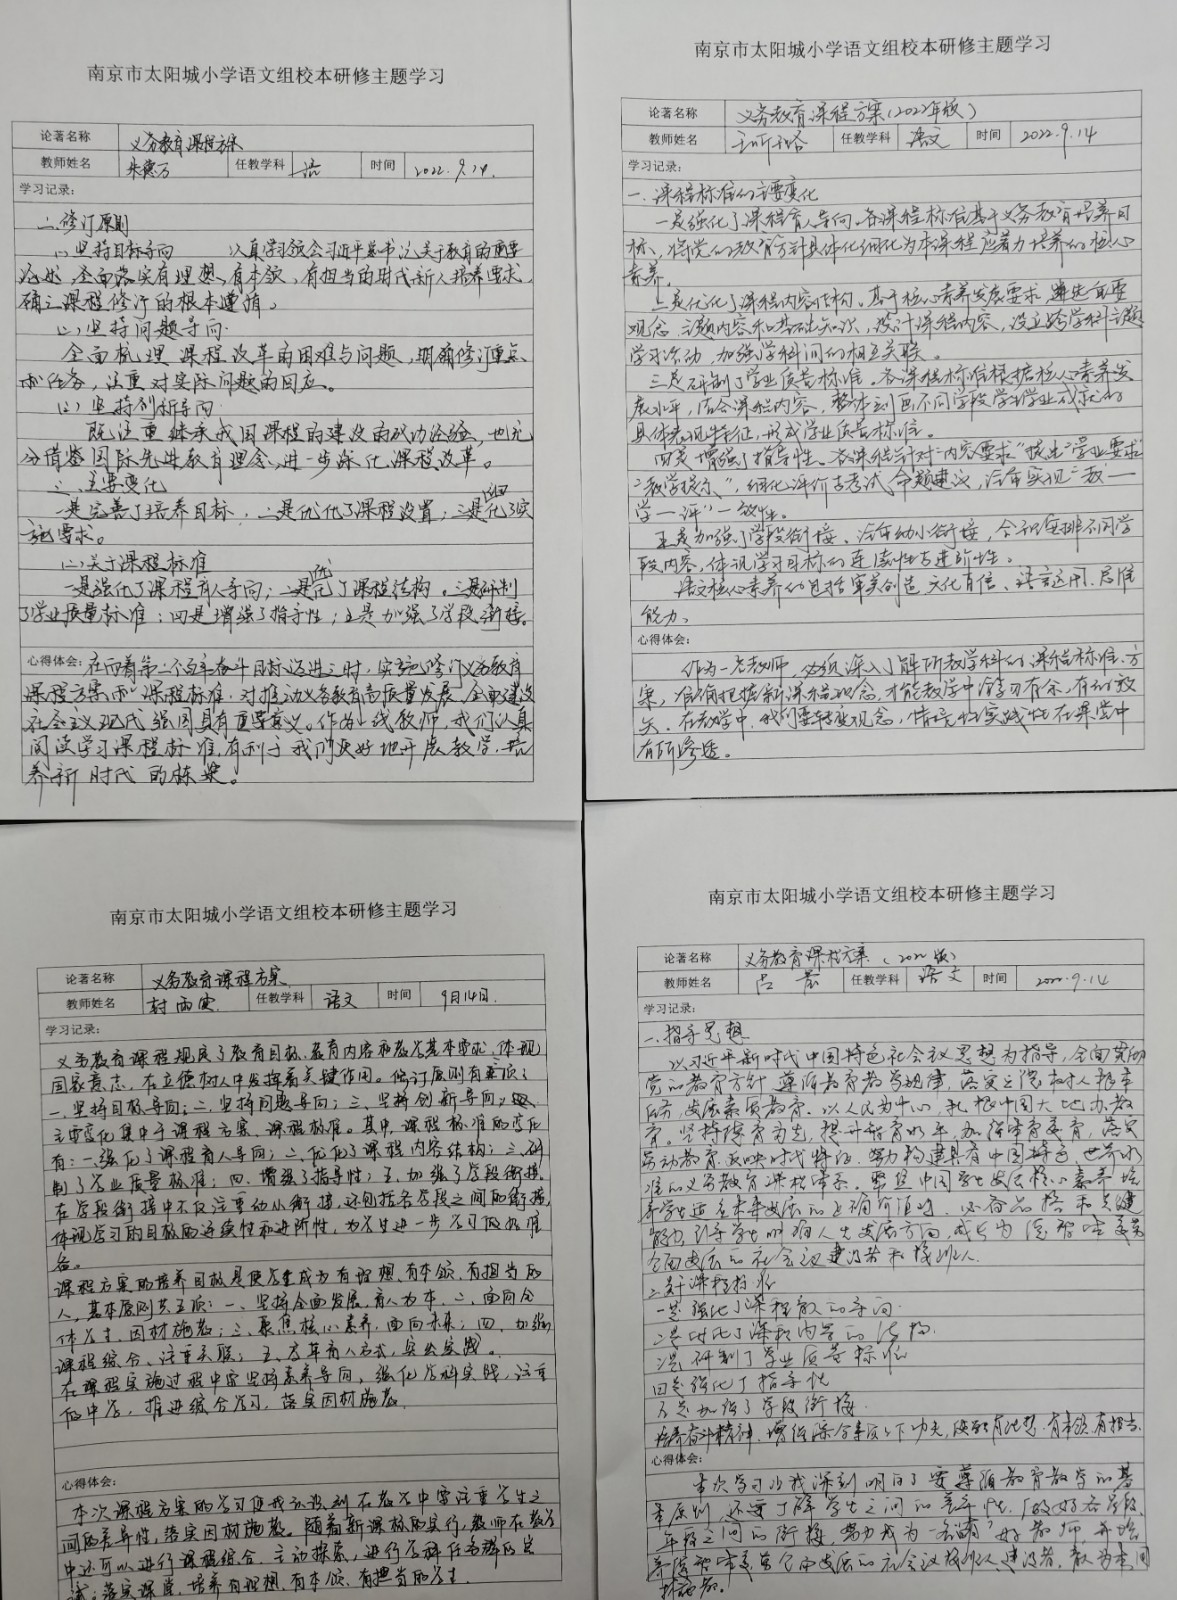 南京市太阳城小学语文组校本研修主题学习
论著名称 义务教育课程方案
教师姓名 朱惠万 任教学科 语 时间 2022.9.14.
学习记录:
二、修订原则
(1) 坚持目标导向 认真学习领会习近平总书记关于教育的重要
论述,全面落实有理想、有本领、有担当的时代新人培养要求,
确立课程修订的根本遵循。
(2) 坚持问题导向
全面梳理课程改革的困难与问题,明确修订重点
和任务,注重对实际问题的回应。
坚持创新导向
既注重继承我国课程的建设的成功经验,也充
分借鉴国际先进教育理念,进一步深化课程改革。
三、主要变化
一是完善了培养目标,二是优化了课程设置,三是细化了实
施要求。
(二)关于课程标准
一是强化了课程育人导向;二是优化了课程结构。三是研制
了学业质量标准;四是增强了指导性;五是加强了学段衔接。
心得体会:在向着第二个百年奋斗目标迈进之时,实施修订义务教育
课程方案和课程标准,对推动义务教育高质量发展,全面建设
社会主义现代强国具有重要意义。作为一线教师,我们认真
阅读学习课程标准,有利于我们更好地开展教学,培
养新时代的栋梁。
南京市太阳城小学语文组校本研修主题学习
论著名称 义务教育课程方案(2022年版)
教师姓名 任教学科 语文 时间 2022.9.14
学习记录:
一、课程标准的主要变化
一是强化了课程育人导向。各课程标准基于义务教育培养目
标,将党的教育方针具体化细化为本课程应着力培养的核心
素养。
二是优化了课程内容结构。基于核心素养发展要求,遴选重要
观念、主题内容和基础知识,设计课程内容,设立跨学科主题
学习活动,加强学科间的相互关联。
三是研制了学业质量标准。各课程标准根据核心素养发
展水平,结合课程内容,整体刻画不同学段学生学业成就的
具体表现特征,形成学业质量标准。
四是增强了指导性。各课程针对“内容要求”提出“学业要求”
“教学提示”,细化评价与考试命题建议,注重实现“教—
学—评”一致性。
五是加强了学段衔接。注重幼小衔接,合理安排不同学
段内容,体现学习目标的连续性与进阶性。
语文核心素养的包括审美创造、文化自信、语言运用、思维
能力。
心得体会:
作为一名教师,必须深入了解所教学科的课程标准、方
案,准确把握新课程观念,才能教学中学习有余,有的放
矢。在教学中,我们要转变观念,情境性实践性在课堂中
有所渗透。
南京市太阳城小学语文组校本研修主题学习
论著名称 义务教育课程方案
教师姓名 封雨寅 任教学科 语文 时间 9月14日.
学习记录:
义务教育课程规定了教育目标、教育内容和教学基本要求,体现
国家意志,在立德树人中发挥着关键作用。修订原则有三项:
一、坚持目标导向;二、坚持问题导向;三、坚持创新导向。
主要变化集中于课程方案、课程标准。其中,课程标准的变化
有:一、强化了课程育人导向;二、优化了课程内容结构;三、研
制了学业质量标准;四、增强了指导性;五、加强了学段衔接。
在学段衔接中不仅注重幼小衔接,还包括各学段之间的衔接,
体现学习的目标的连续性和进阶性,为学生进一步学习做好准
备。
课程方案的培养目标是使学生成为有理想、有本领、有担当的
人,基本原则共五项:一、坚持全面发展,育人为本;二、面向全
体学生,因材施教;三、聚焦核心素养,面向未来;四、加强
课程综合,注重关联;五、变革育人方式,突出实践。
在课程实施过程中需坚持素养导向,强化学科实践,注重
做中学,推进综合学习,落实因材施教.
心得体会:
本次课程方案的学习使我认识到在教学中需注重学生之
间的差异性,落实因材施教。随着新课标的实行,教师在教学
中还可以进行课程综合、主动探索,进行学科任务群的尝
试;落实课堂,培养有理想、有本领、有担当的学生.
南京市太阳城小学语文组校本研修主题学习
论著名称 义务教育课程方案(2022版)
教师姓名 吕 任教学科 语文 时间 2022.9.14
学习记录:
一、指导思想
以习近平新时代中国特色社会主义思想为指导,全面贯彻
党的教育方针,遵循教育教学规律,落实立德树人根本
任务,发展素质教育。以人民为中心,扎根中国大地办教
育。坚持德育为先,提升智育水平,加强体育美育,落实
劳动教育。反映时代特征,努力构建具有中国特色、世界水
准的义务教育课程体系。聚焦中国学生发展核心素养,培
养学生适应未来发展的正确价值观、必备品格和关键
能力,引导学生明确人生发展方向,成长为德智体美劳
全面发展的社会主义建设者和接班人。
二、关于课程标准
一是强化了课程育人的导向.
二是优化了课程内容的结构.
三是研制了学业质量标准
四是强化了指导性
五是加强了学段衔接.
培养奋斗精神,增强综合素质上下功夫,使孩子有理想、有本领、有担当.
心得体会:
本次学习让我深刻明白了要遵循教育教学的基
本原则,还要了解学生之间的差异性,做好各学段、
年段之间的衔接,努力成为一名“四有”好教师,并培
养德智体美劳全面发展的社会主义接班人、建设者,